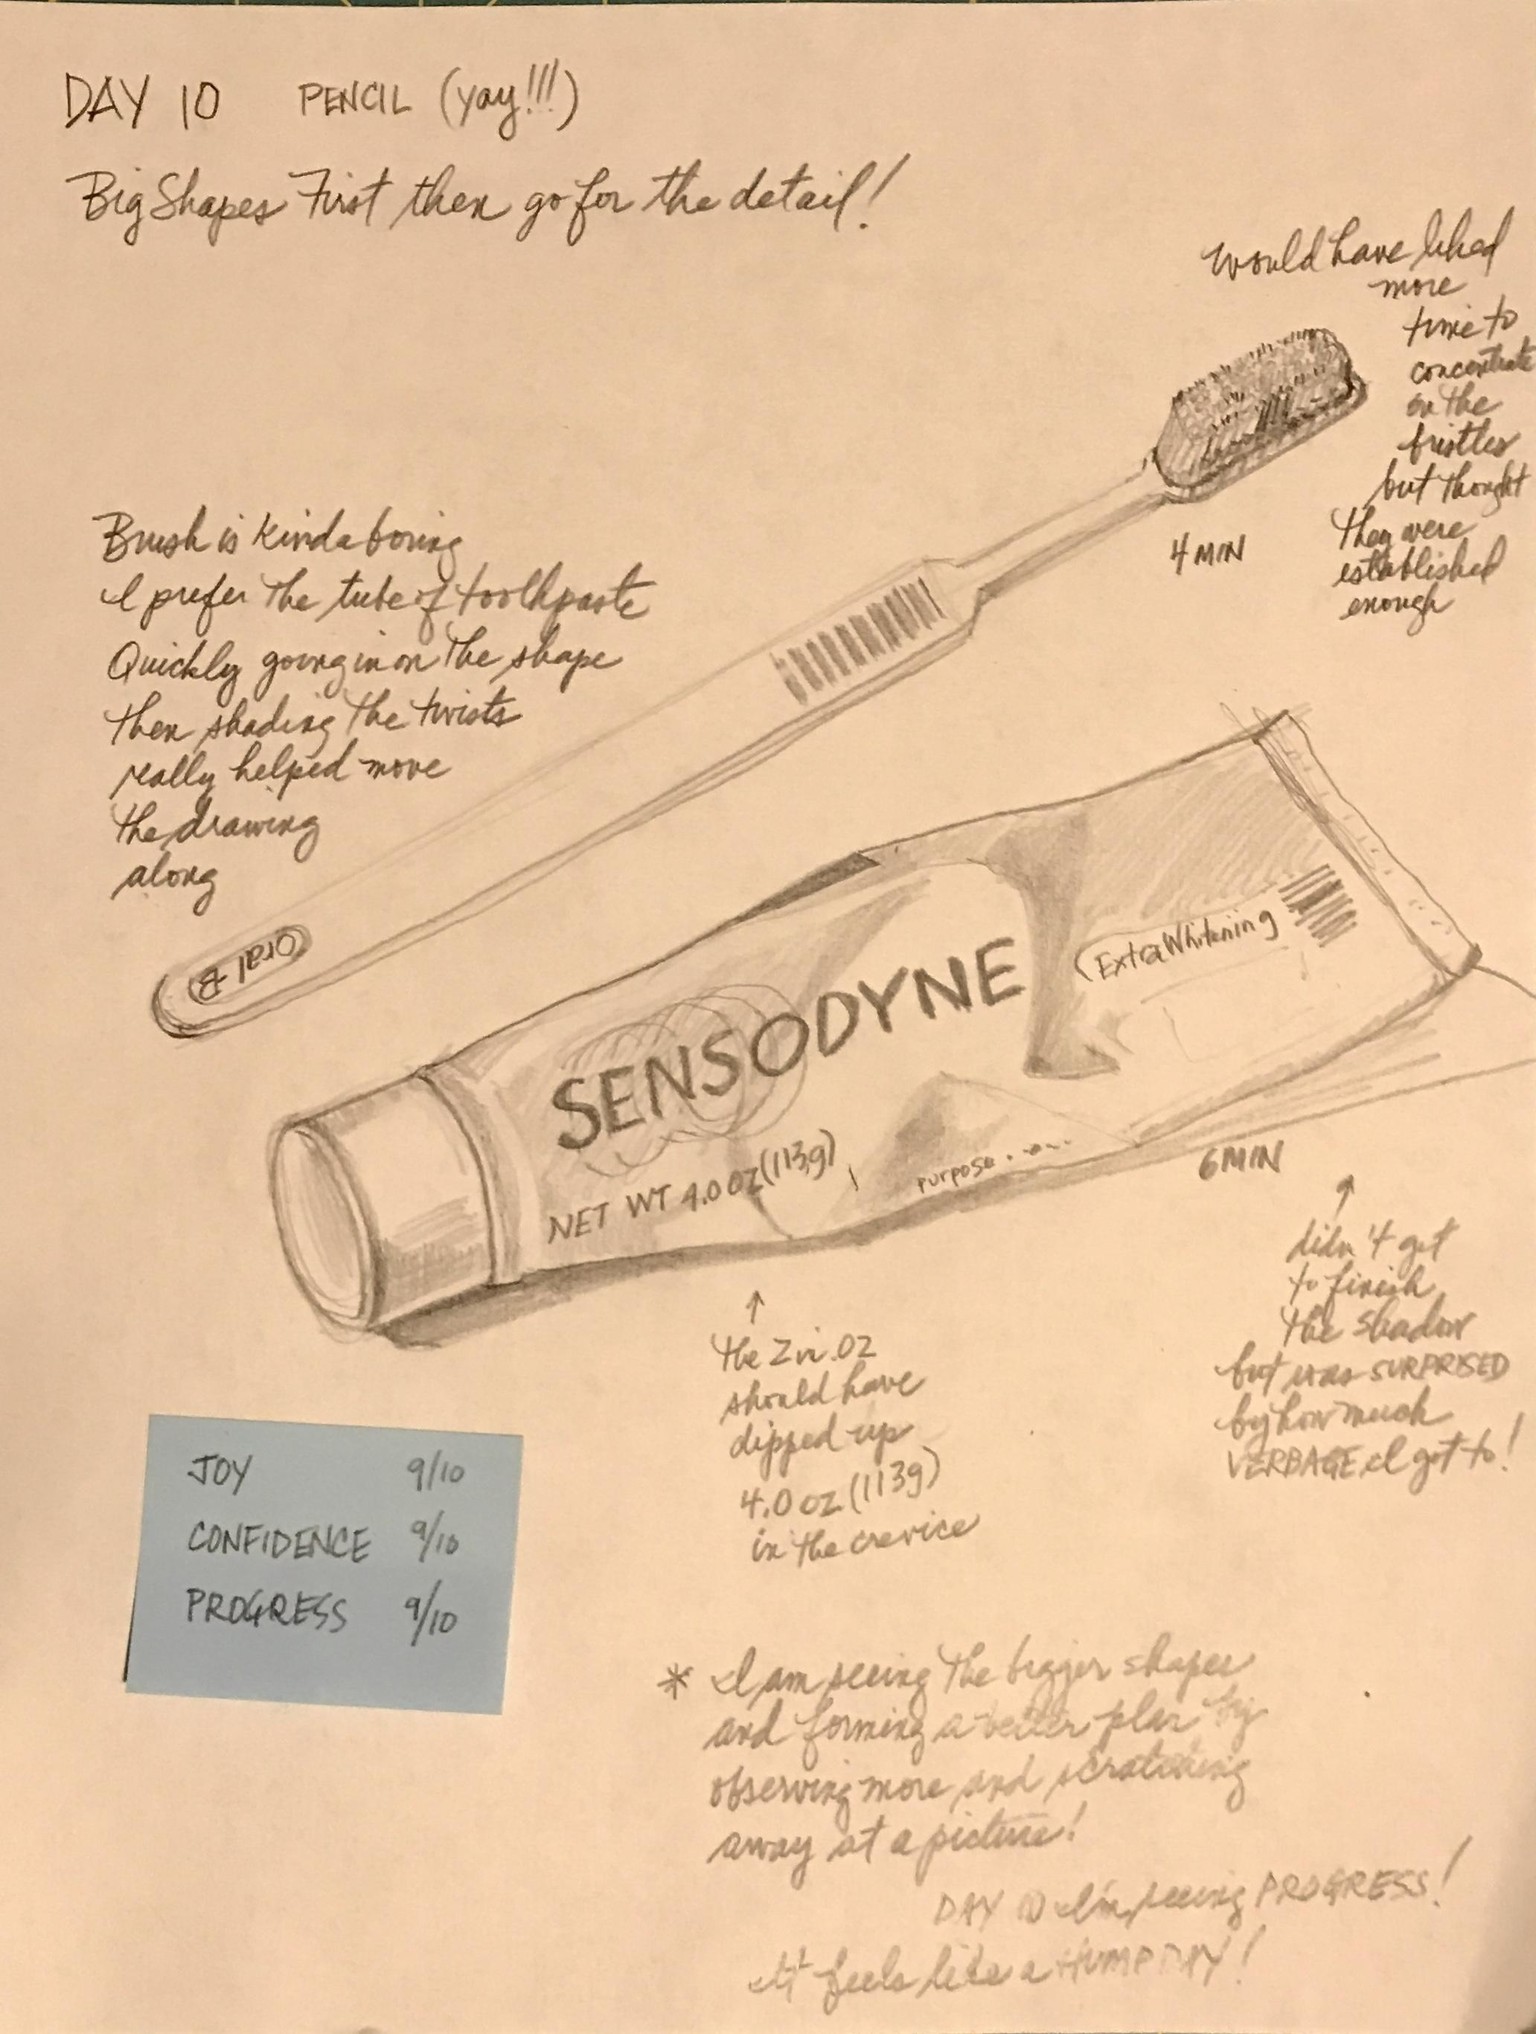 DAY 10 PENCIL (yay!!!)
Big Shapes First then go for the detail!
Would have liked
more
time to
concentrate
on the
bristles
but thought
they were
established
enough
4 MIN
Brush is kinda boring
I prefer the tube of toothpaste
Quickly going in on the shape
then shading the twists
really helped move
the drawing
along
Oral B
SENSODYNE
Extra Whitening
NET WT 4.0 OZ (113g)
purpose
6 MIN
didn't get
to finish
the shadow
but was SURPRISED
by how much
VERBAGE I got to!
the Z in OZ
should have
dipped up
4.0 oz (113g)
in the crevice
JOY 9/10
CONFIDENCE 9/10
PROGRESS 9/10
* I am seeing the bigger shapes
and forming a better plan by
observing more and scratching
away at a picture!
DAY 10 I'm seeing PROGRESS!
It feels like a HUMP DAY!